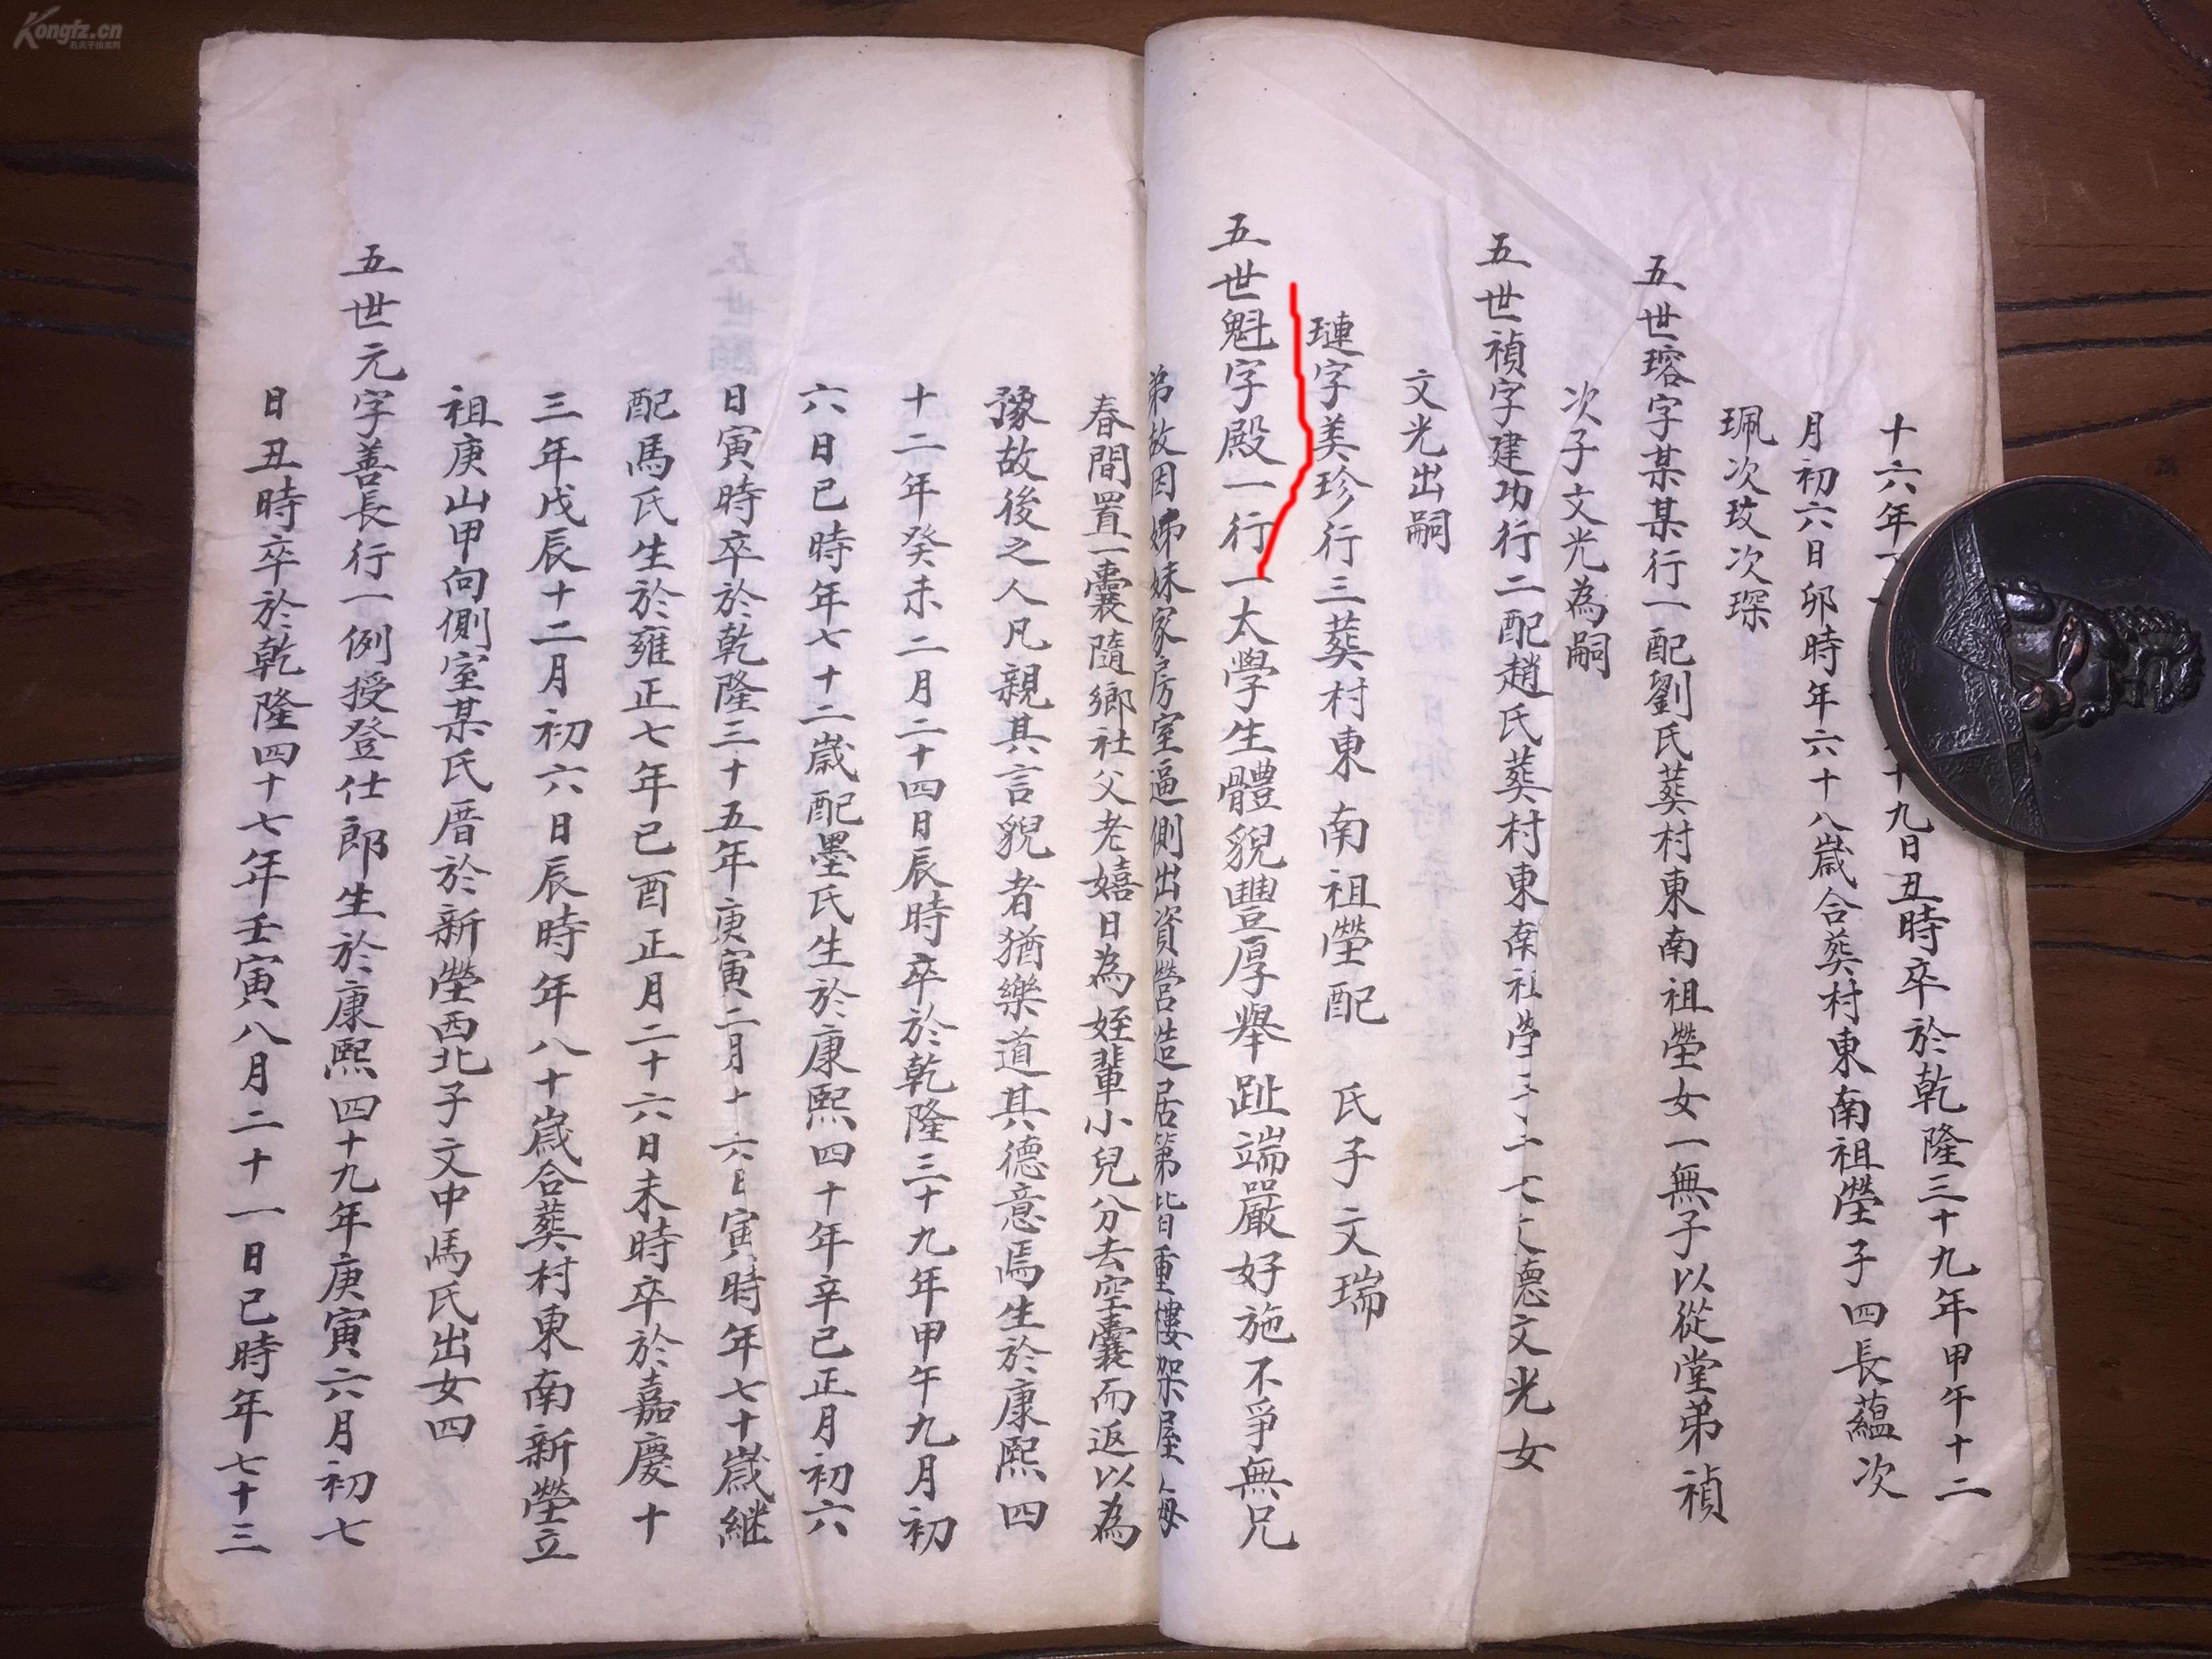 十六年十九日丑時卒於乾隆三十九年甲午十二
月初六日卯時年六十八歲合葬村東南祖塋子四長蘊次
珮次玫次琛
五世瑢字某某行一配劉氏葬村東南祖塋女一無子以從堂弟禎
次子文光為嗣
五世禎字建功行二配趙氏葬村東南祖塋文德文光女
文光出嗣
璉字美珍行三葬村東南祖塋配 氏子文瑞
五世魁字殿一行一太學生體貌豐厚舉趾端嚴好施不爭無兄
弟故因姊妹家房室逼側出資營造居第皆重樓架屋每
春間置一囊隨鄉社父老嬉日為姪輩小兒分去空囊而返以為
豫故後之人凡親其言貌者猶樂道其德意焉生於康熙四
十二年癸未二月二十四日辰時卒於乾隆三十九年甲午九月初
六日巳時年七十二歲配墨氏生於康熙四十年辛巳正月初六
日寅時卒於乾隆三十五年庚寅二月十六日寅時年七十歲繼
配馬氏生於雍正七年己酉正月二十六日未時卒於嘉慶十
三年戊辰十二月初六日辰時年八十歲合葬村東南新塋立
祖庚山甲向側室某氏厝於新塋西北子文中馬氏出女四
五世元字善長行一例授登仕郎生於康熙四十九年庚寅六月初七
日丑時卒於乾隆四十七年壬寅八月二十一日巳時年七十三
Kongfz.cn